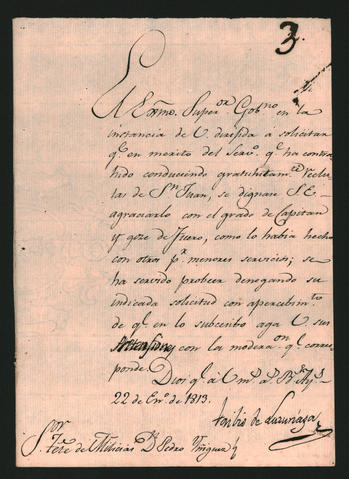 3
El Exmo. Super.or Gob.no en la
instancia de V. dirijida á solicitar
q.e en merito del Serv.o q.e ha contra
hido conduciendo gratuitam.te reclu
tas de S.n Juan, se dignase S.E.
agraciarlo con el grado de Capitan
y goze de fuero, como lo habia hecho
con otros p.r menores servicios; se
ha servido probeer denegando su
indicada solicitud con apercebim.to
de q.e en lo subcesibo aga V. sus
con la moderac.on q.e corres
ponde.
Dios g.e á V. m.s a.s B.s Ay.s
22 de En.o de 1813.
Toribio de Luzuriaga
S.or
Ten.te de Milicias D.n Pedro